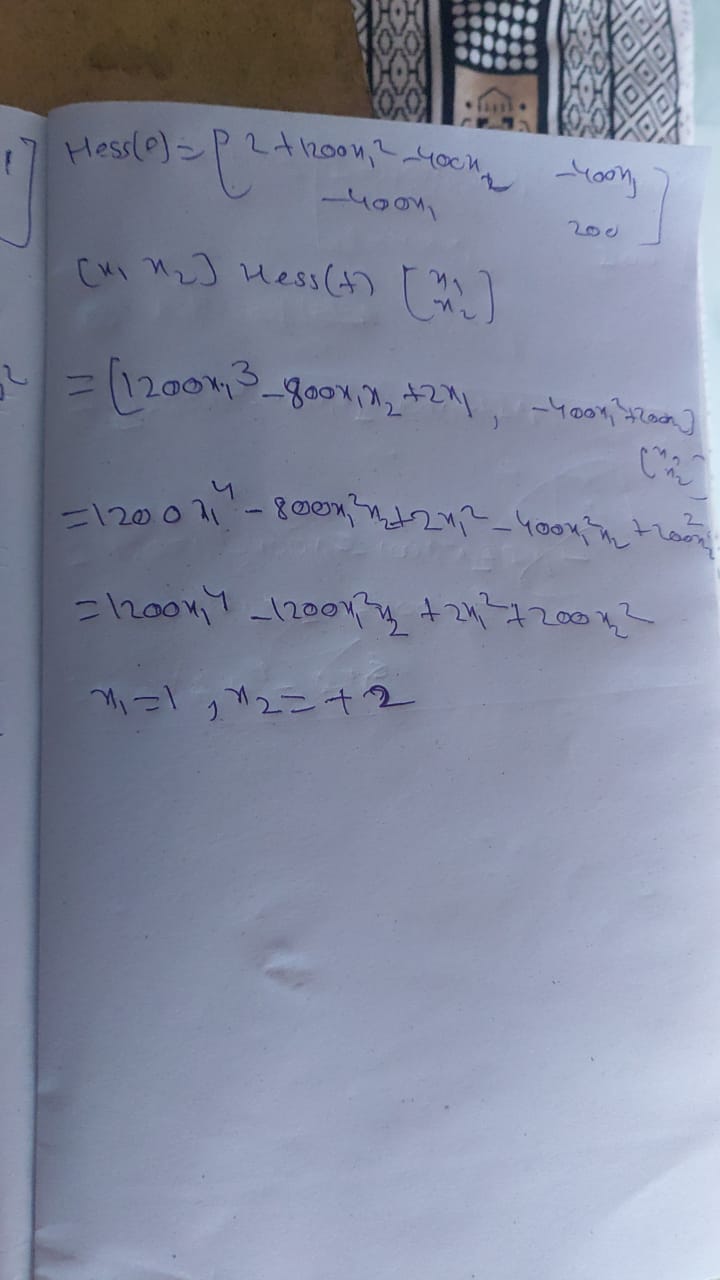 Hess(f) = [ 2 + 1200x₁² - 400x₂   -400x₁
-400x₁   200 ]
(x₁ x₂) Hess(f) [x₁
x₂]
= [1200x₁³ - 800x₁x₂ + 2x₁ , -400x₁² + 200x₂]
[x₁
x₂]
= 1200x₁⁴ - 800x₁²x₂ + 2x₁² - 400x₁²x₂ + 200x₂²
= 1200x₁⁴ - 1200x₁²x₂ + 2x₁² + 200x₂²
x₁ = 1 , x₂ = + 2